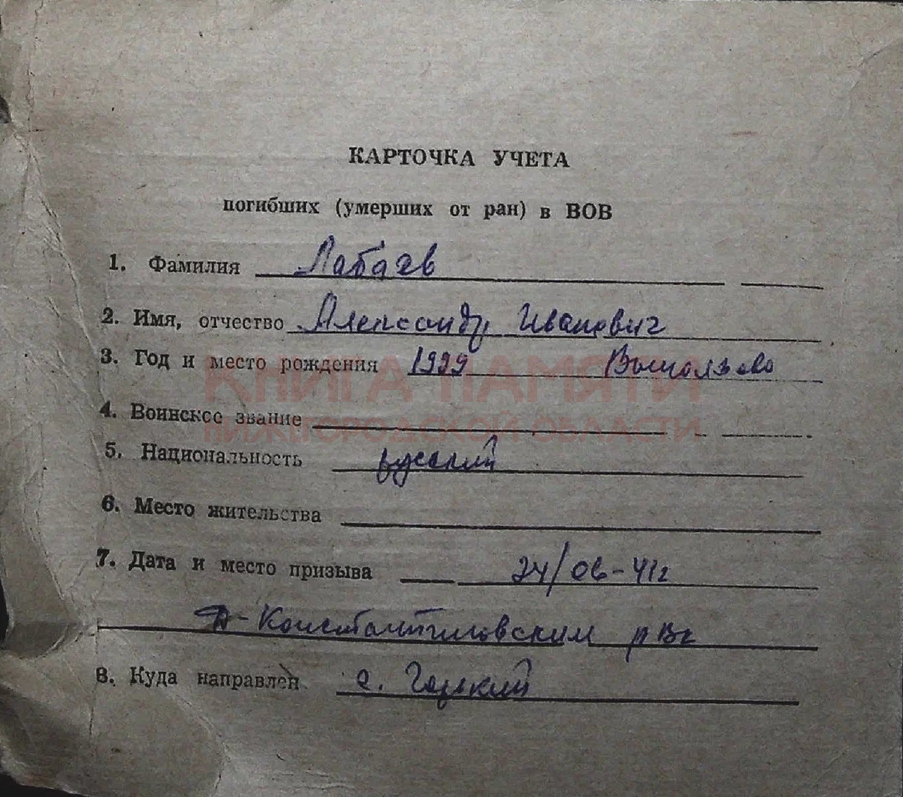 КАРТОЧКА УЧЕТА
погибших (умерших от ран) в ВОВ
1. Фамилия Лабаев
2. Имя, отчество Александр Иванович
3. Год и место рождения 1999
КНИГА ПАМЯТИ
4. Воинское звание
НИЖЕГОРОДСКОЙ ОБЛАСТИ
5. Национальность русский
6. Место жительства
7. Дата и место призыва 24/06-41г
Д-Константиновским рвк
8. Куда направлен г. Горький